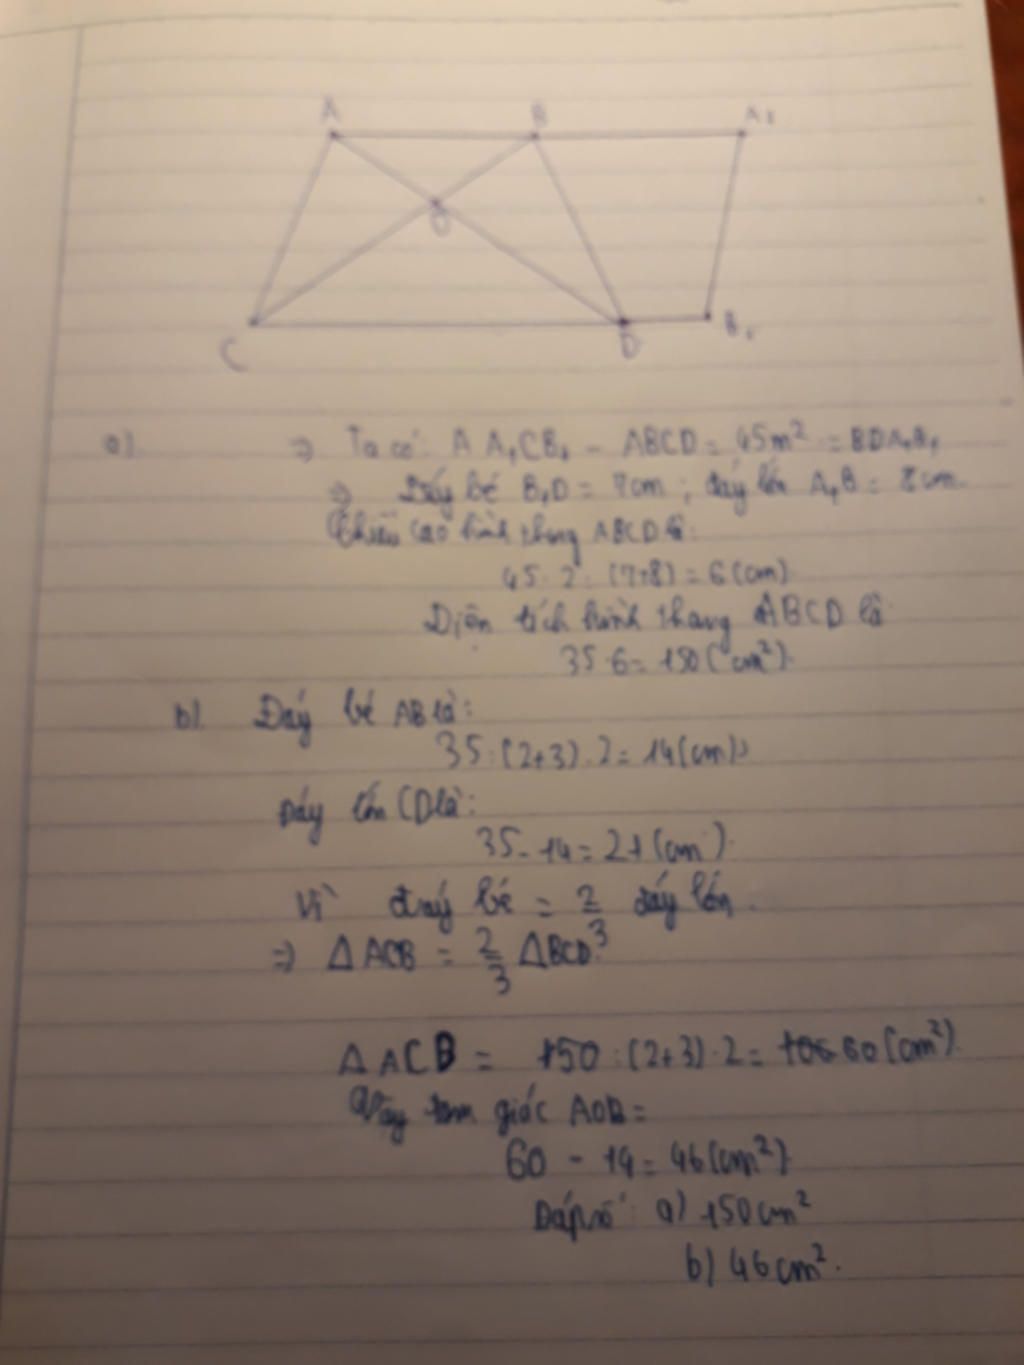 A B A₁
O
C D B₁
a) => Ta có: A A₁CB₁ - ABCD = 45m² = BDA₁B₁
=> Đáy bé B₁D = 7cm ; đáy lớn A₁B = 8cm.
Chiều cao hình thang ABCD là:
45.2:(7+8) = 6(cm)
Diện tích hình thang ABCD là
35.6 = 150(cm²).
b) Đáy bé AB là:
35:(2+3).2 = 14(cm)
Đáy lớn CD là:
35 - 14 = 21(cm).
Vì đáy bé = 2/3 đáy lớn.
=> Δ ACB = 2/3 Δ BCD.
Δ ACB = 150:(2+3).2 = 60(cm²).
Vậy tam giác AOB =
60 - 14 = 46(cm²)
Đáp số: a) 150cm²
b) 46cm².